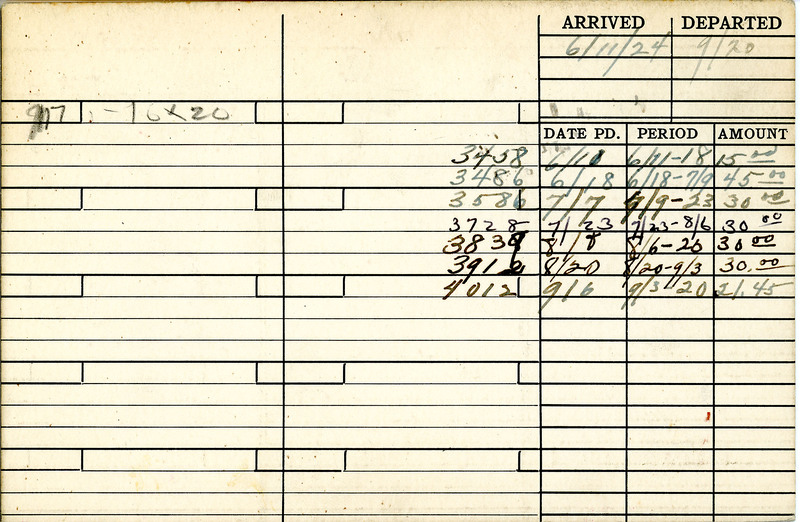 ARRIVED DEPARTED
6/11/24 9/20
16x20
DATE PD. PERIOD AMOUNT
3458 6/10 6/11-18 15 00
3486 6/18 6/18-7/9 45 00
3586 7/7 7/9-23 30 00
3728 7/23 7/23-8/6 30 00
3839 8/8 8/6-20 30 00
3912 8/20 8/20-9/3 30.00
4012 9/6 9/3-20 21.45